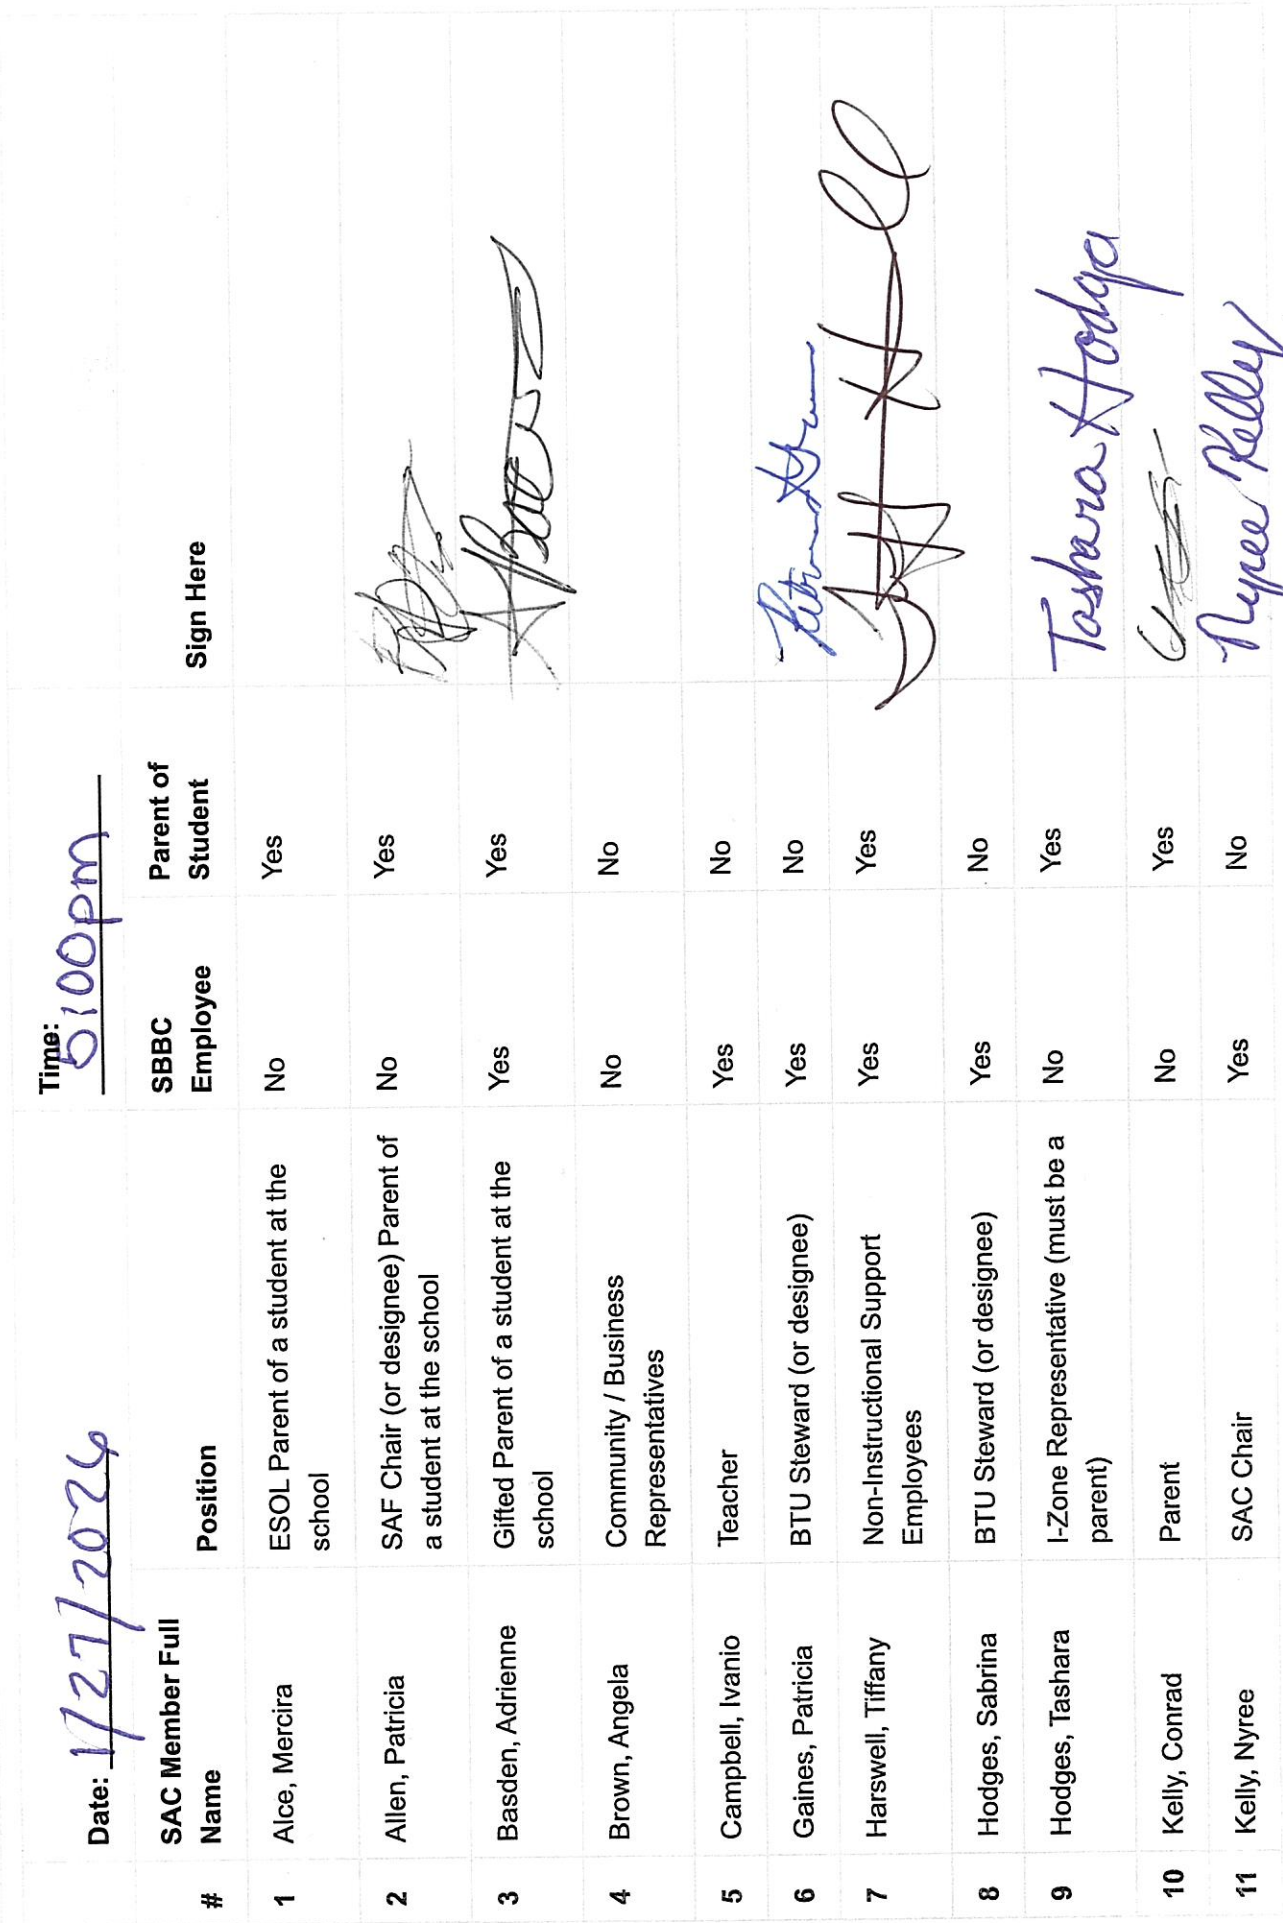 Date: 1/27/2026 Time: 5:00pm
# SAC Member Full Name Position SBBC Employee Parent of Student Sign Here
1 Alce, Mercira ESOL Parent of a student at the school No Yes
2 Allen, Patricia SAF Chair (or designee) Parent of a student at the school No Yes
3 Basden, Adrienne Gifted Parent of a student at the school Yes Yes
4 Brown, Angela Community / Business Representatives No No
5 Campbell, Ivanio Teacher Yes No
6 Gaines, Patricia BTU Steward (or designee) Yes No
7 Harswell, Tiffany Non-Instructional Support Employees Yes Yes
8 Hodges, Sabrina BTU Steward (or designee) Yes No
9 Hodges, Tashara I-Zone Representative (must be a parent) No Yes Tashara Hodge
10 Kelly, Conrad Parent No Yes
11 Kelly, Nyree SAC Chair Yes No Nyree Kelley